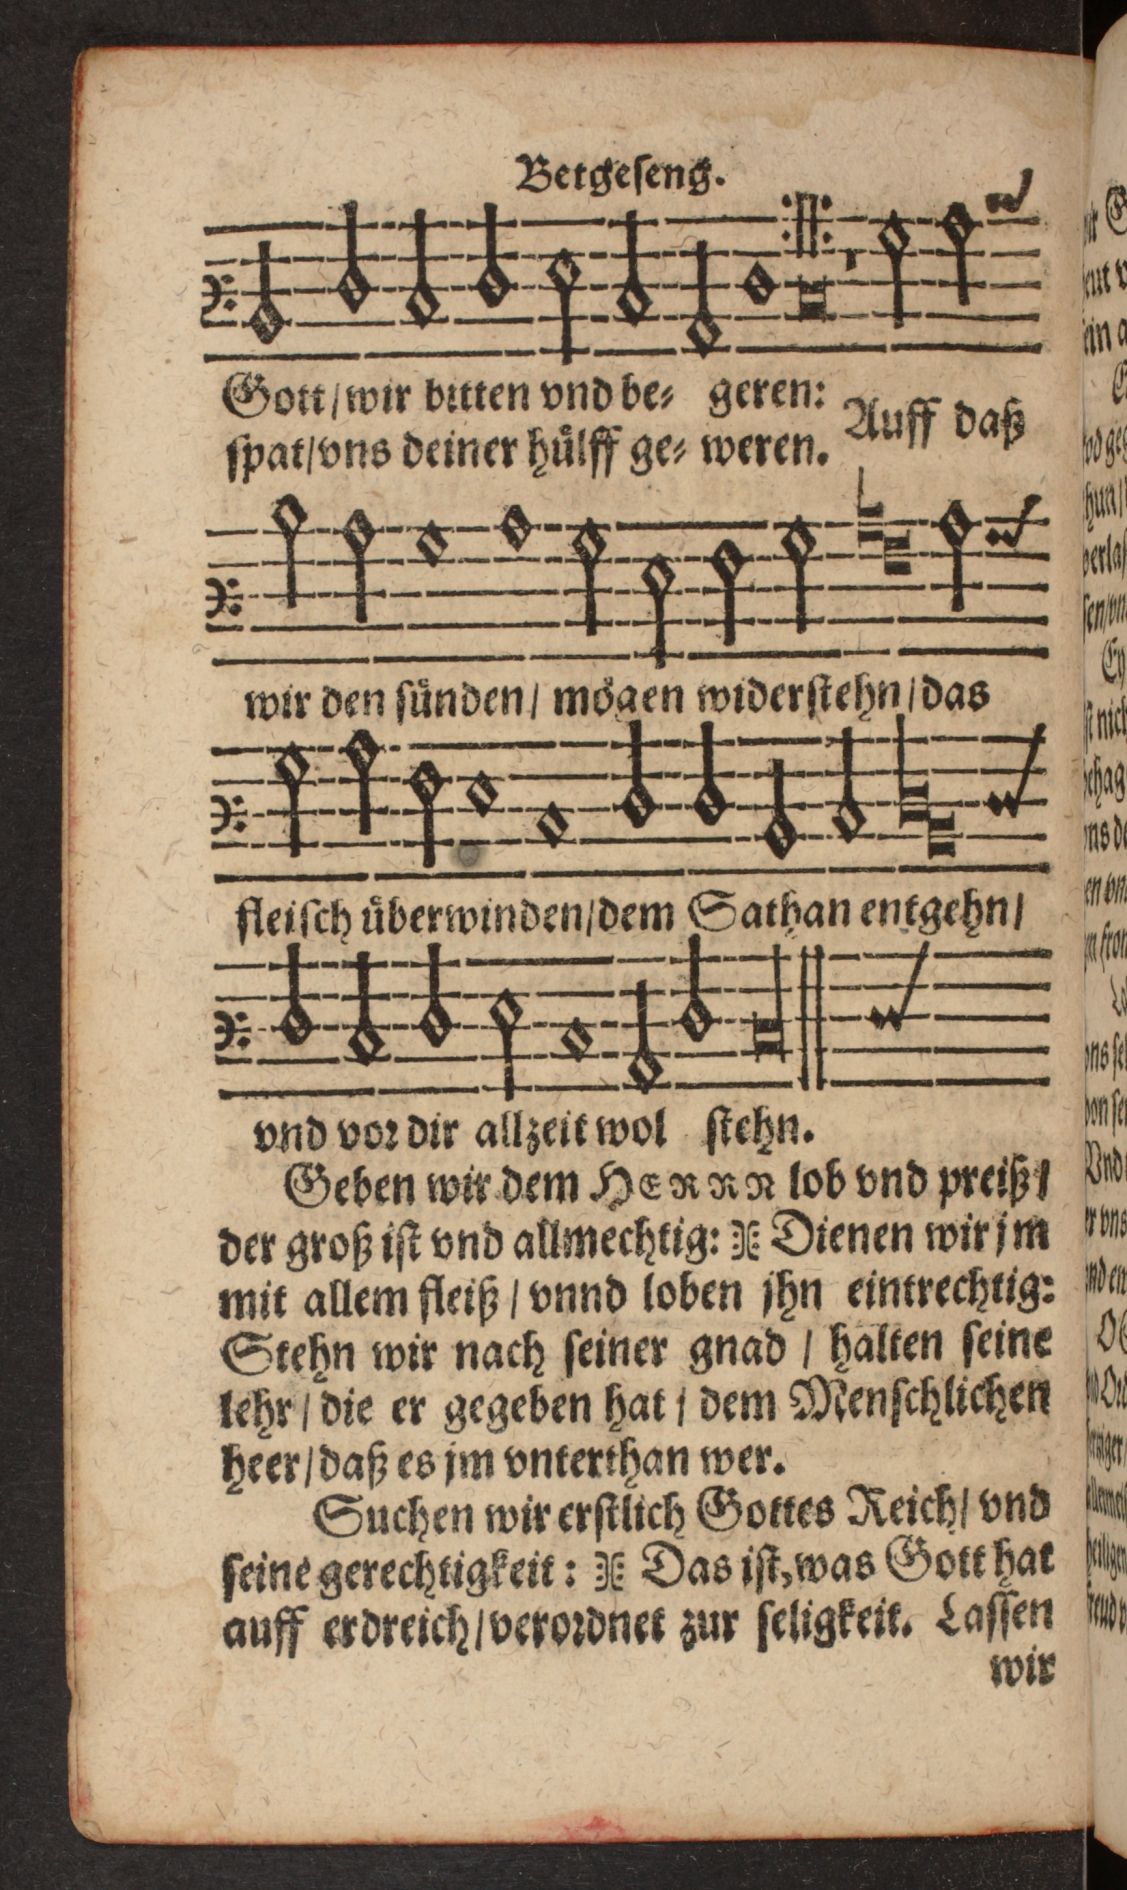 Betgeseng.
Gott/wir bitten vnd be⸗ geren:
spat/vns deiner hülff ge⸗ weren. Auff daß
wir den sünden/ mögen widerstehn/das
fleisch überwinden/dem Sathan entgehn/
vnd vor dir allzeit wol stehn.
Geben wir dem HERRN lob vnd preiß/
der groß ist vnd allmechtig: Dienen wir jm
mit allem fleiß/vnnd loben jhn eintrechtig:
Stehn wir nach seiner gnad / halten seine
lehr/die er gegeben hat/dem Menschlichen
heer/daß es jm vnterthan wer.
Suchen wir erstlich Gottes Reich/ vnd
seine gerechtigkeit: Das ist, was Gott hat
auff erdreich/verordnet zur seligkeit. Lassen
wir